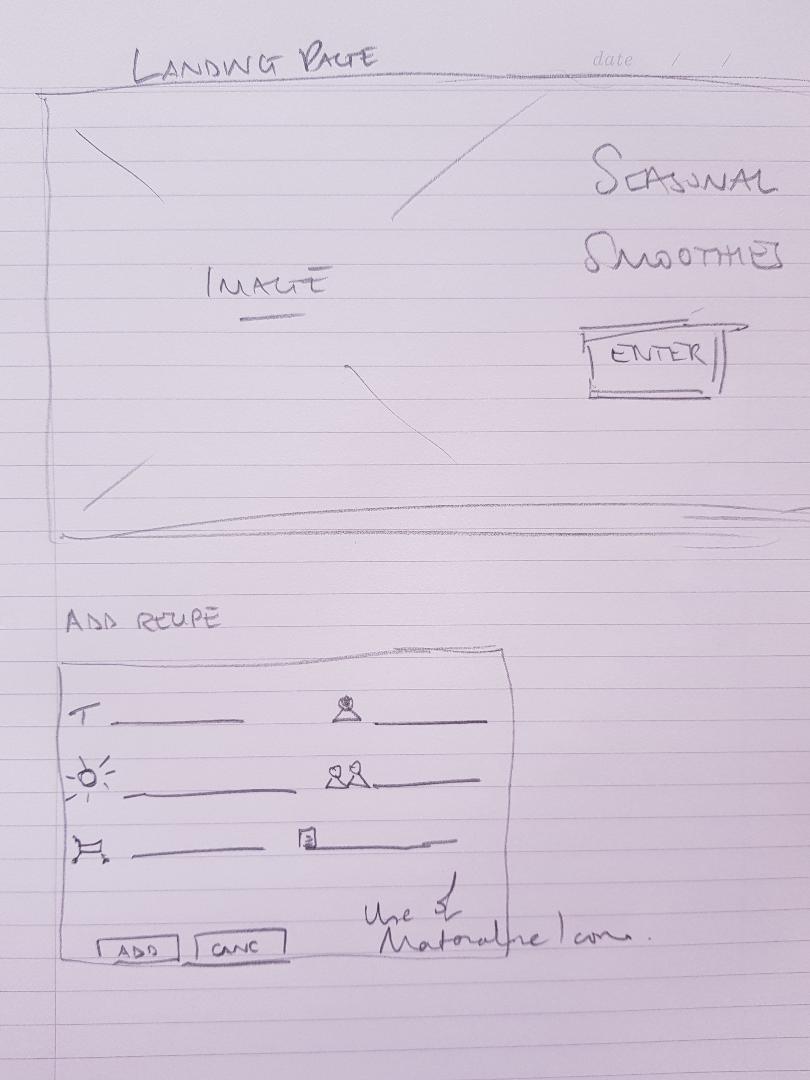 LANDING PAGE
date / /
SEASONAL
SMOOTHIES
IMAGE
ENTER
ADD RECIPE
T
ADD CANC
Use of
Materialize Icons.